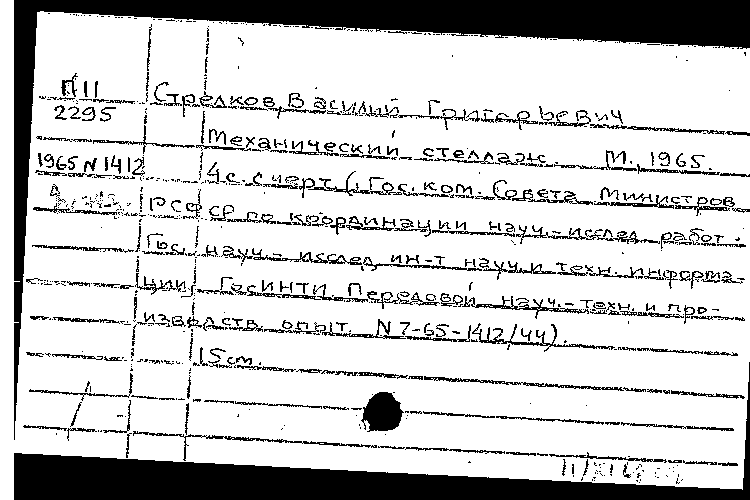 П11
2295
Стрелков, Василий Григорьевич
Механический стеллаж. М., 1965.
1965 N 1412
4 с. с черт. (Гос. ком. Совета Министров
РСФСР по координации науч.-исслед. работ.
Гос. науч.-исслед. ин-т науч. и техн. информа-
ции. ГОСИНТИ. Передовой науч.-техн. и про-
изводств. опыт. N 7-65-1412/44).
15 см.